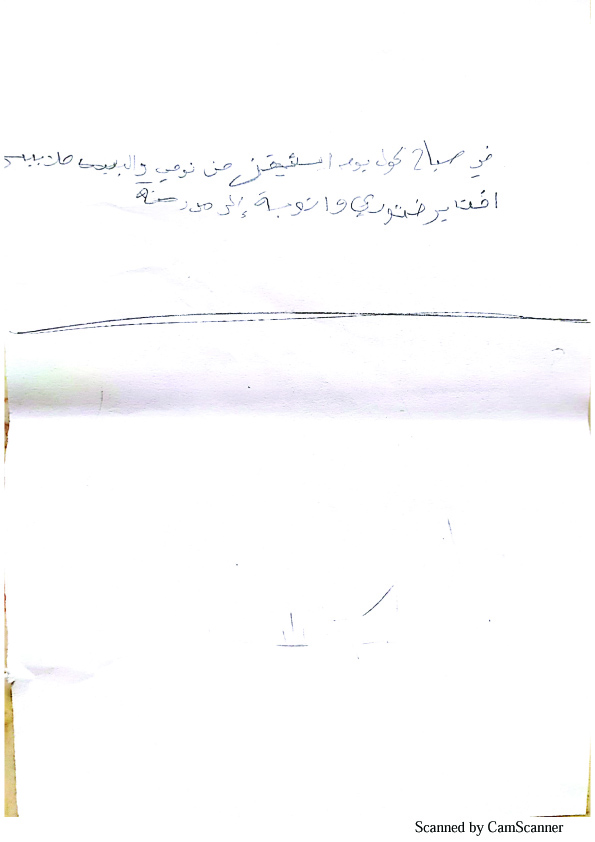 في صباح كول يوم استيقض من نومي والبس ملابسي
افتاير ضتوري واتوجة إلى مدرسة
Scanned by CamScanner